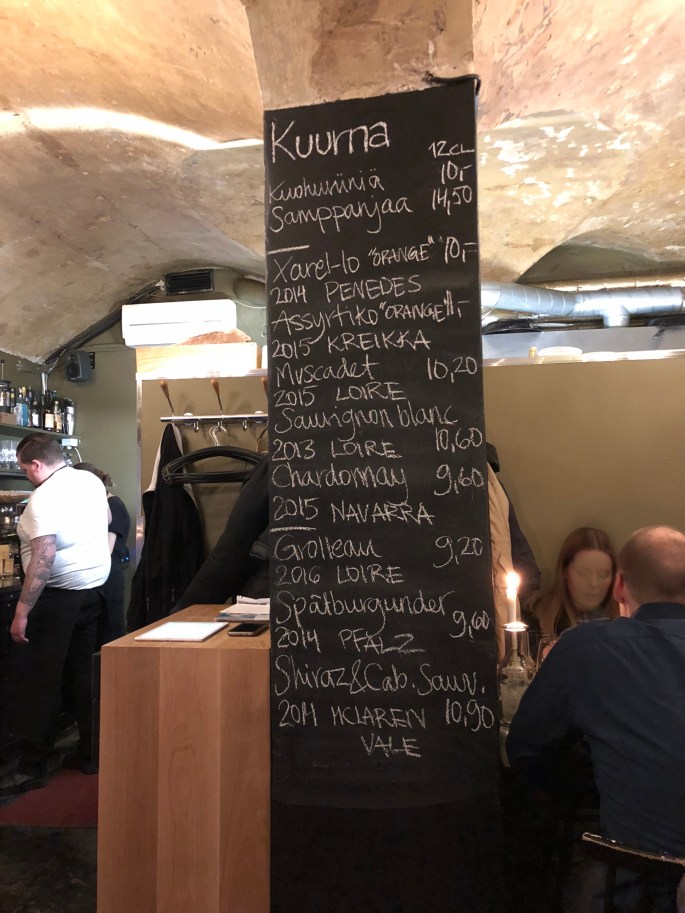 Kuurna
12CL
Kuohuviiniä 10,-
Samppanjaa 14,50
Xarel-lo "ORANGE" 10,-
2014 PENEDES
Assyrtiko "ORANGE" 11,-
2015 KREIKKA
Muscadet 10,20
2015 LOIRE
Sauvignon blanc
2013 LOIRE 10,60
Chardonnay 9,60
2015 NAVARRA
Grolleau 9,20
2016 LOIRE
Spätburgunder 9,60
2014 PFALZ
Shiraz&Cab. Sauv.
2014 MCLAREN 10,90
VALE